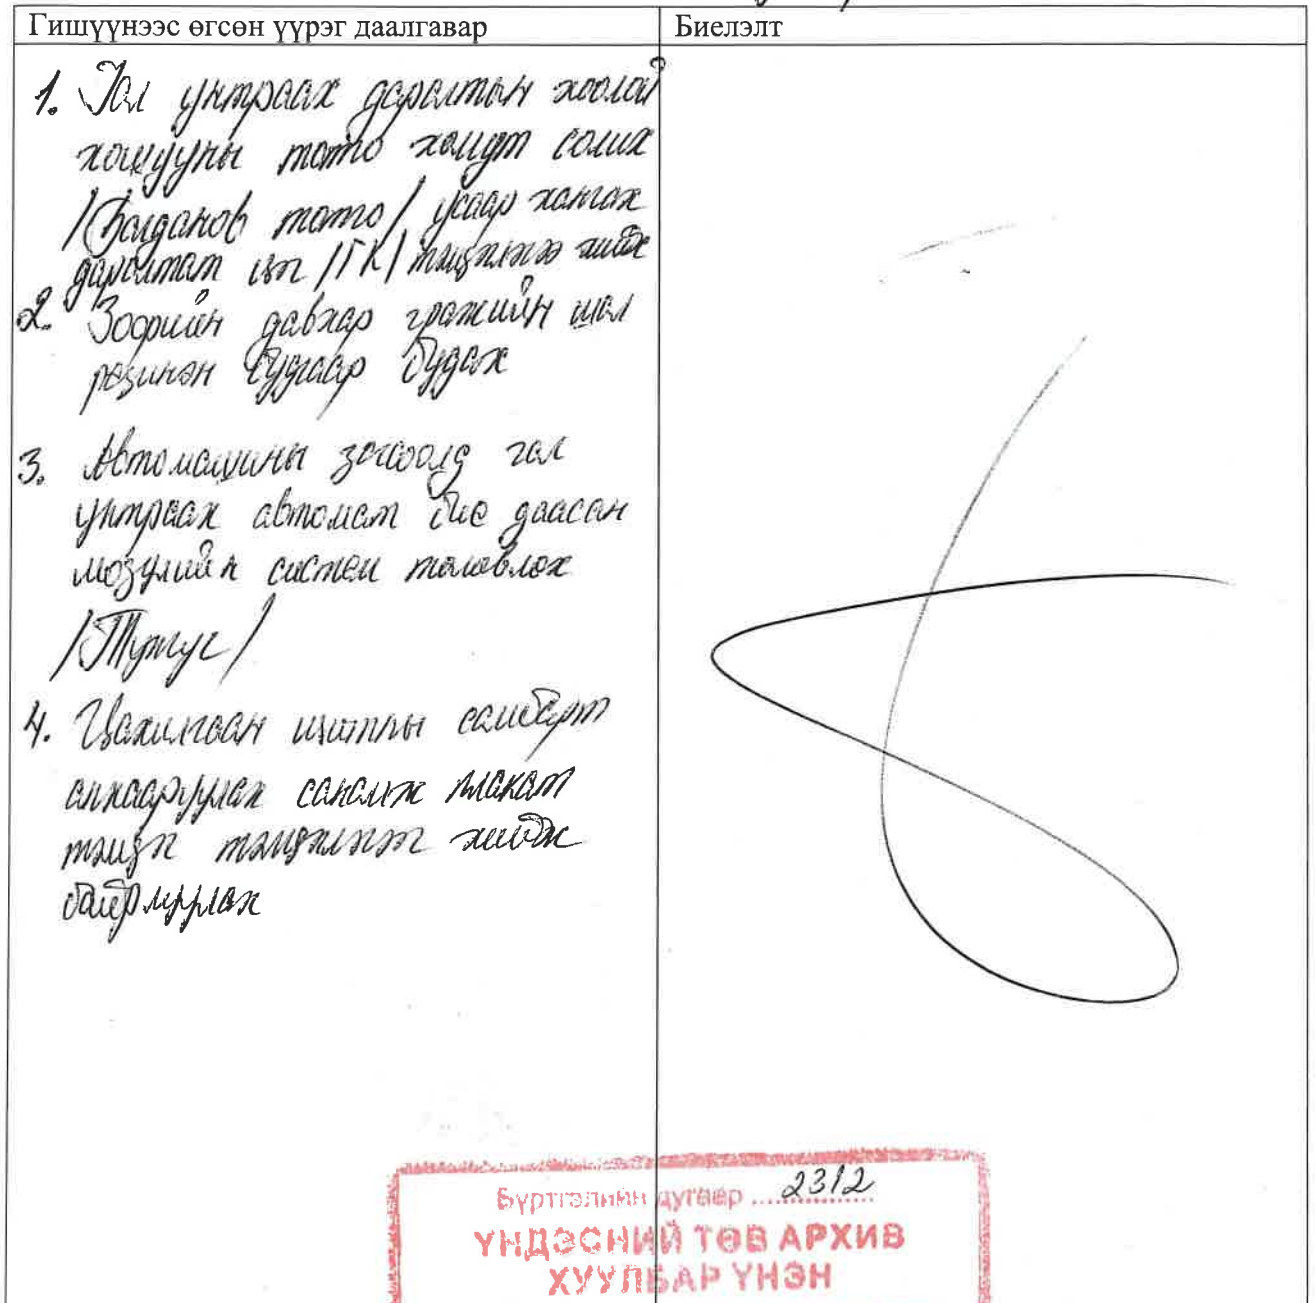 Гишүүнээс өгсөн үүрэг даалгавар
Биелэлт
1. Гал унтраах даралтын хоолой
хошууны тото хомут солих
/Богданов тото/ усаар хангах
даралтат цэг /ГК/ тэмдэглэгээ хийх
2. Зоорийн давхар гражийн шал
резинэн будгаар будах
3. Автомашины зогсоолд гал
унтраах автомат бие даасан
модулийн систем төлөвлөх
/Тунгус/
4. Цахилгаан щитны самбарт
анхааруулах санамж плакат
тэмдэг тэмдэглэгээг хийж
байрлуулах
Бүртгэлийн дугаар 2312
ҮНДЭСНИЙ ТӨВ АРХИВ
ХУУЛБАР ҮНЭН